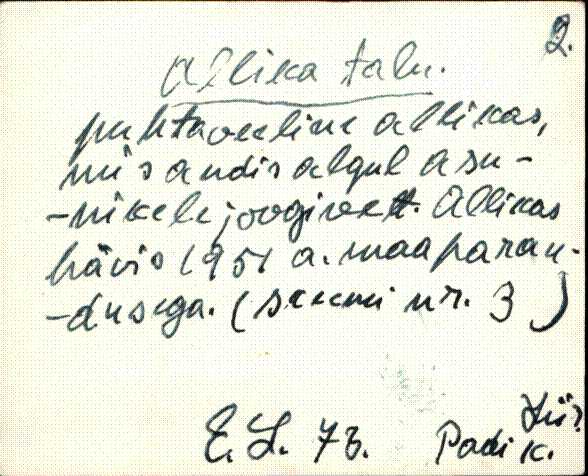 2.
Allika talu.
puhtaveeline allikas,
mis andis algul asu-
-nikele joogivett. Allikas
hävis 1951 a. maaparan-
-dusega. (skeemi nr. 3)
E. L. 73.
Padi k.